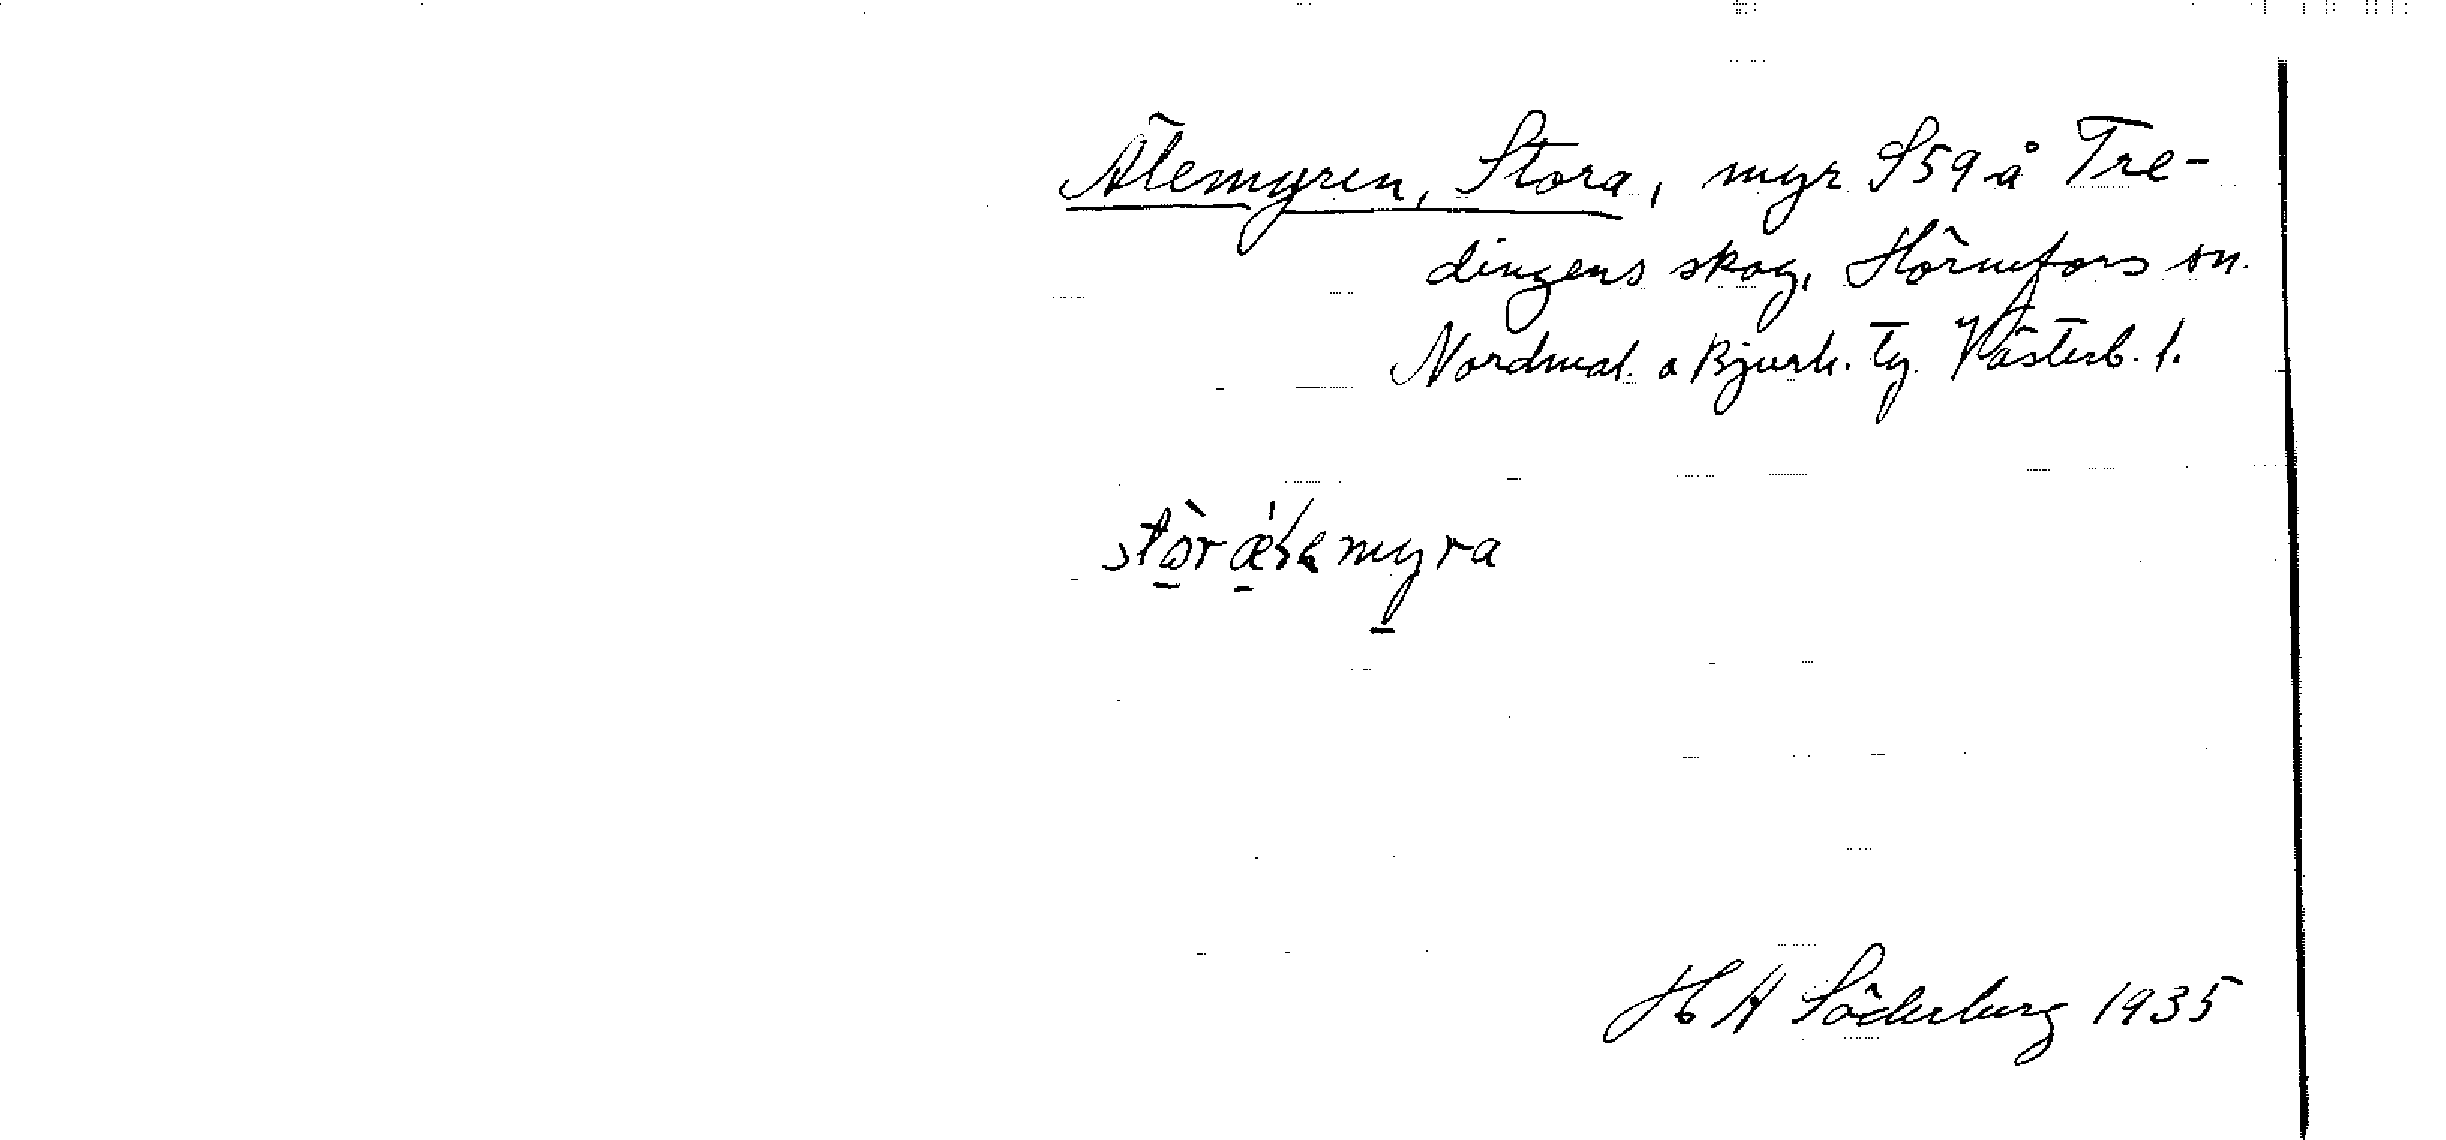 Älemyren, Stora, myr S59 å Tre-
dingens skog, Hörnefors sn.
Nordmal. o Bjurh. tg Västerb. l.
myra
H A Söderberg 1935